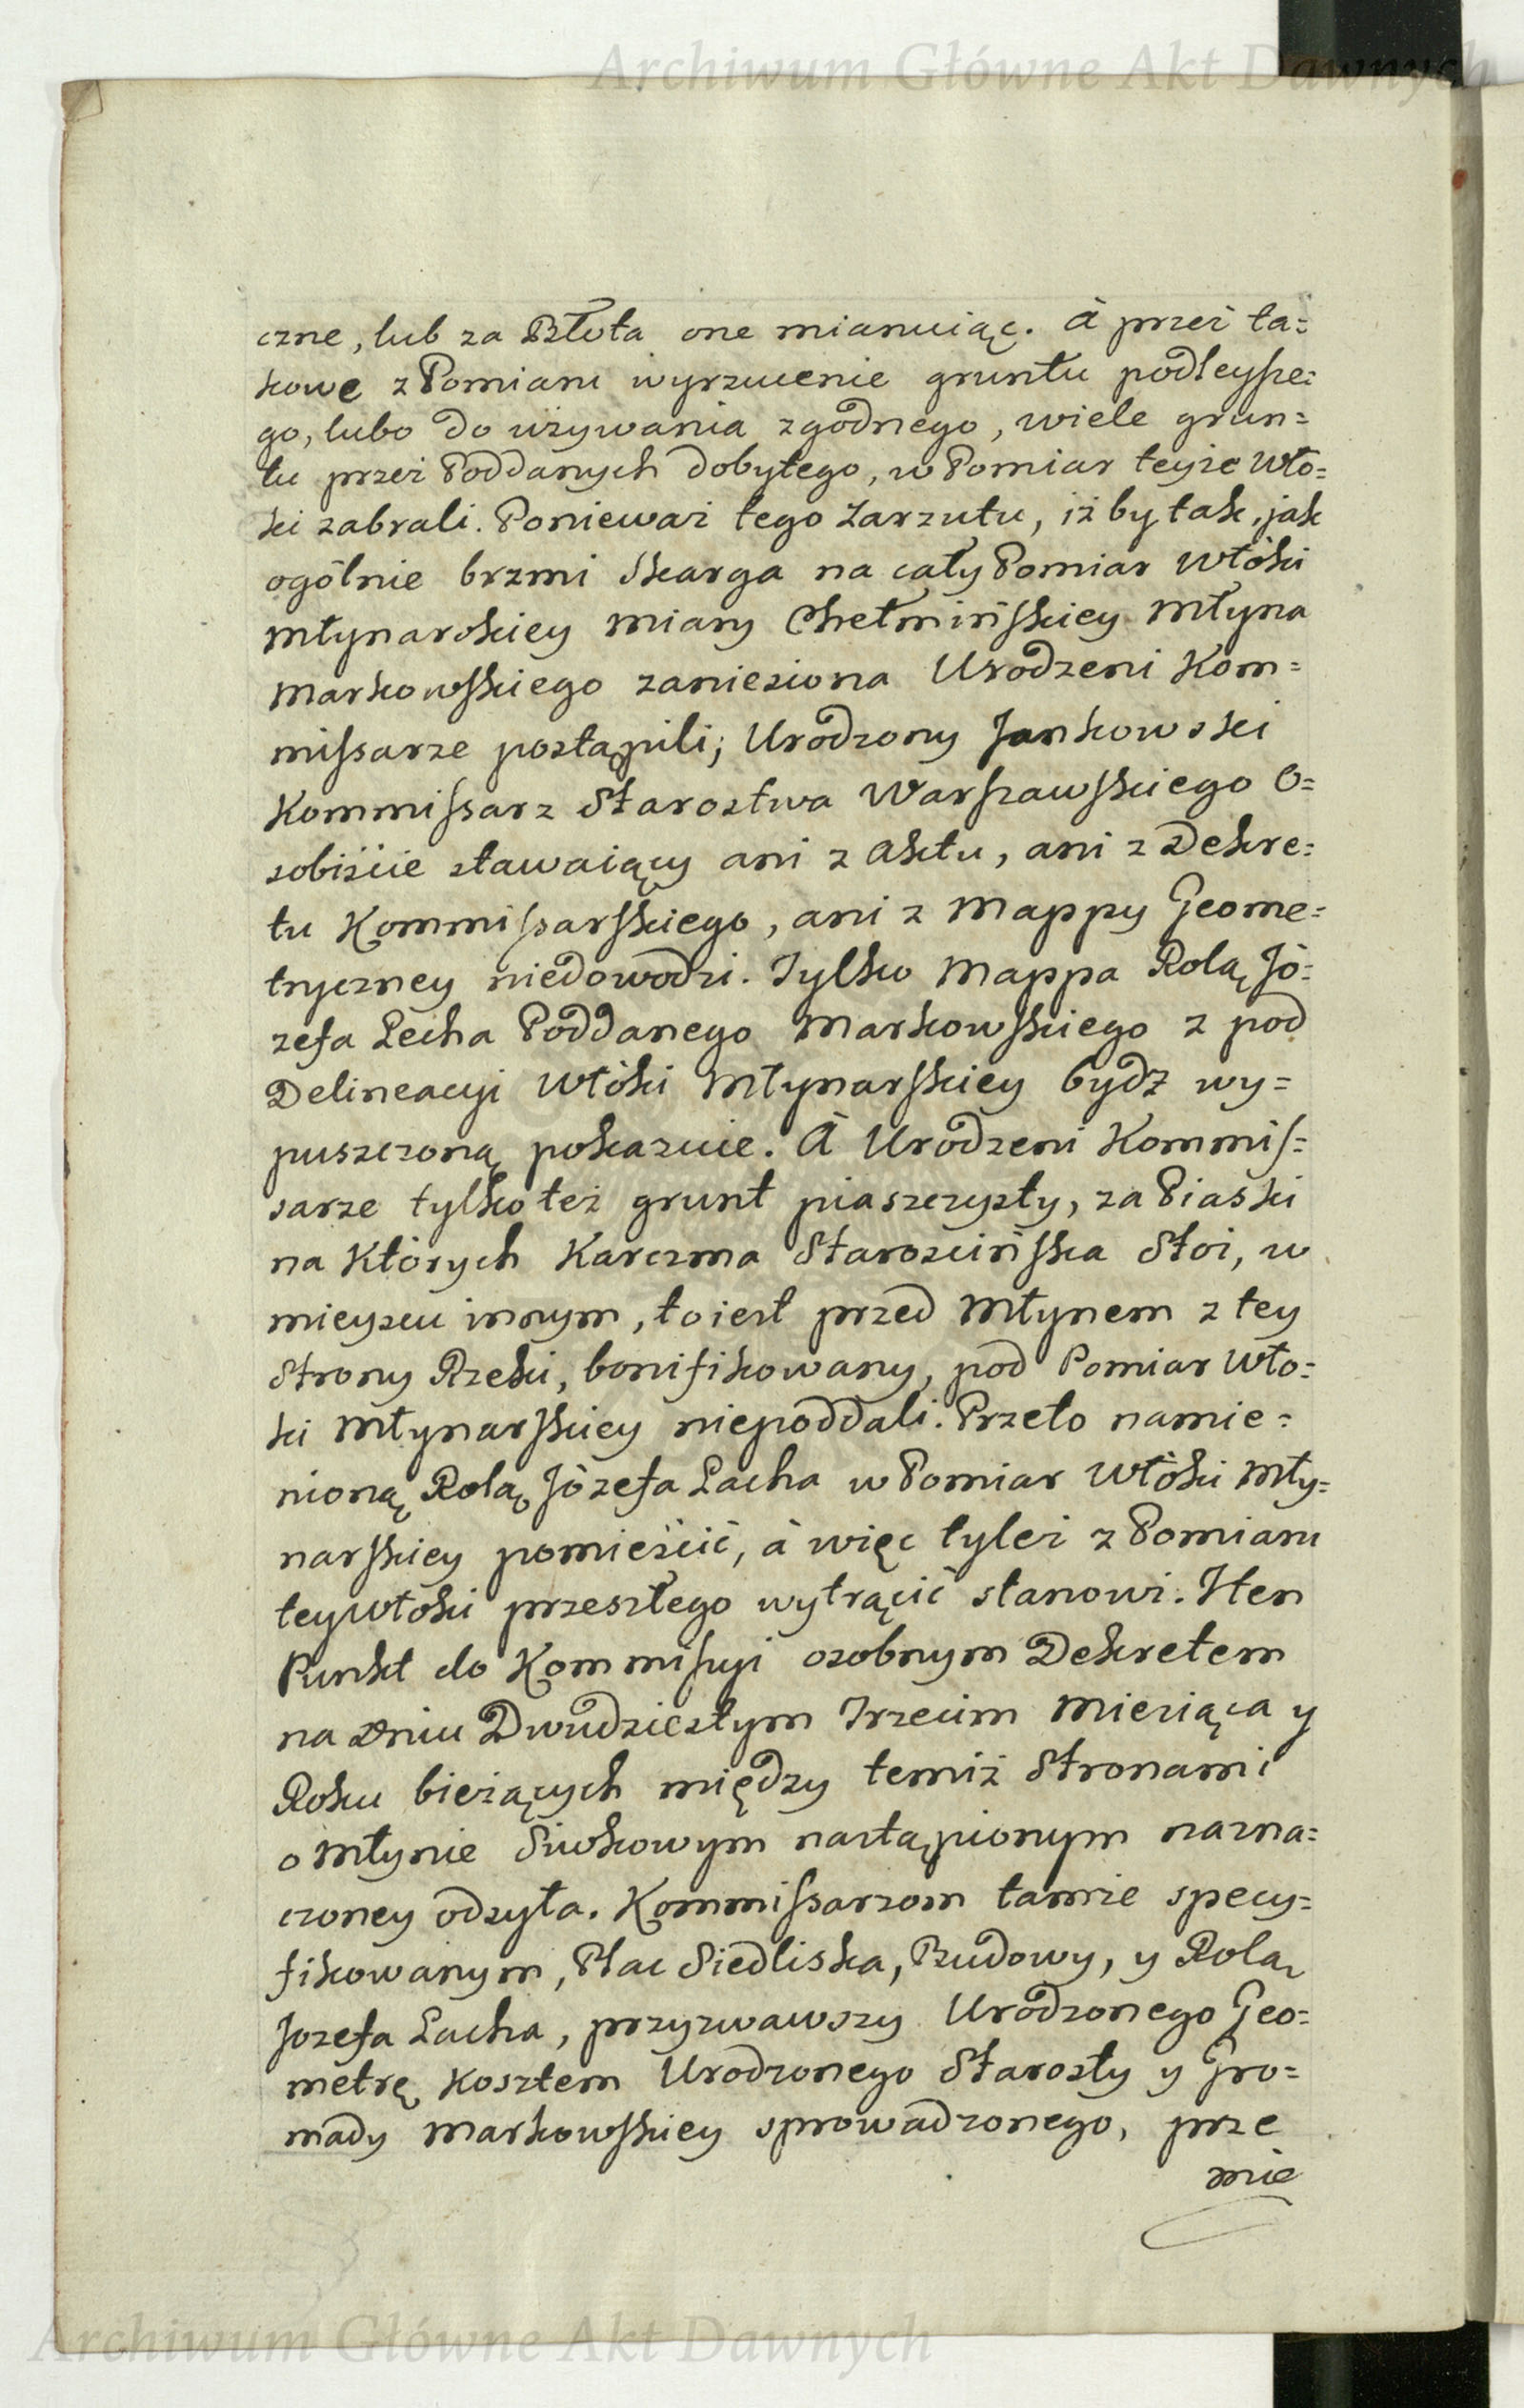 Archiwum Główne Akt Dawnych
czne, lub za Błota one mianuiąc. à przez ta=
kowe z Pomiaru wyrzucenie gruntu podleysze=
go, lubo do używania zgodnego, wiele grun=
tu przez Poddanych dobytego, w Pomiar teyże Wło=
ki zabrali. Ponieważ tego Zarzutu, iż by tak, jak
ogólnie brzmi Skarga na cały Pomiar Włóki
Młynarskiey Miary Chełmińskiey Młyna
Markowskiego zaniesiona Urodzeni Kom=
missarze postąpili; Urodzony Jankowski
Kommissarz Starostwa Warszawskiego O=
sobiście stawaiący ani z Aktu, ani z Dekre=
tu Kommissarskiego, ani z Mappy Geome=
tryczney niedowodzi. Tylko Mappa Rolą Jó=
zefa Lecha Poddanego Markowskiego z pod
Delineacyi Włóki Młynarskiey bydź wy=
puszczoną pokazuie. À Urodzeni Kommis=
sarze tylko też grunt piaszczysty, za Piaski
na Których Karczma Starościńska Stoi, w
mieyscu innym, to iest przed Młynem z tey
Strony Rzeki, bonifikowany, pod Pomiar Wło=
ki Młynarskiey niepoddali. Przeto namie=
nioną Rolą Józefa Lacha w Pomiar Włóki Mły=
narskiey pomieścić, à więc tyleż z Pomiaru
tey Włóki przeszłego wytrącić stanowi. I ten
Punkt do Kommissyi osobnym Dekretem
na dniu Dwudziestym Trzecim Miesiąca y
Roku bieżących między temiż Stronami
o Młynie Siwkowym nastąpionym nazna=
czoney odsyła. Kommissarzom tamże specy=
fikowanym, Plac Siedliska, Budowy, y Rolą
Jozefa Lacha, przyzwawszy Urodzonego Geo=
metrę Kosztem Urodzonego Starosty y Gro=
mady Markowskiey sprowadzonego, prze
mie
Archiwum Główne Akt Dawnych